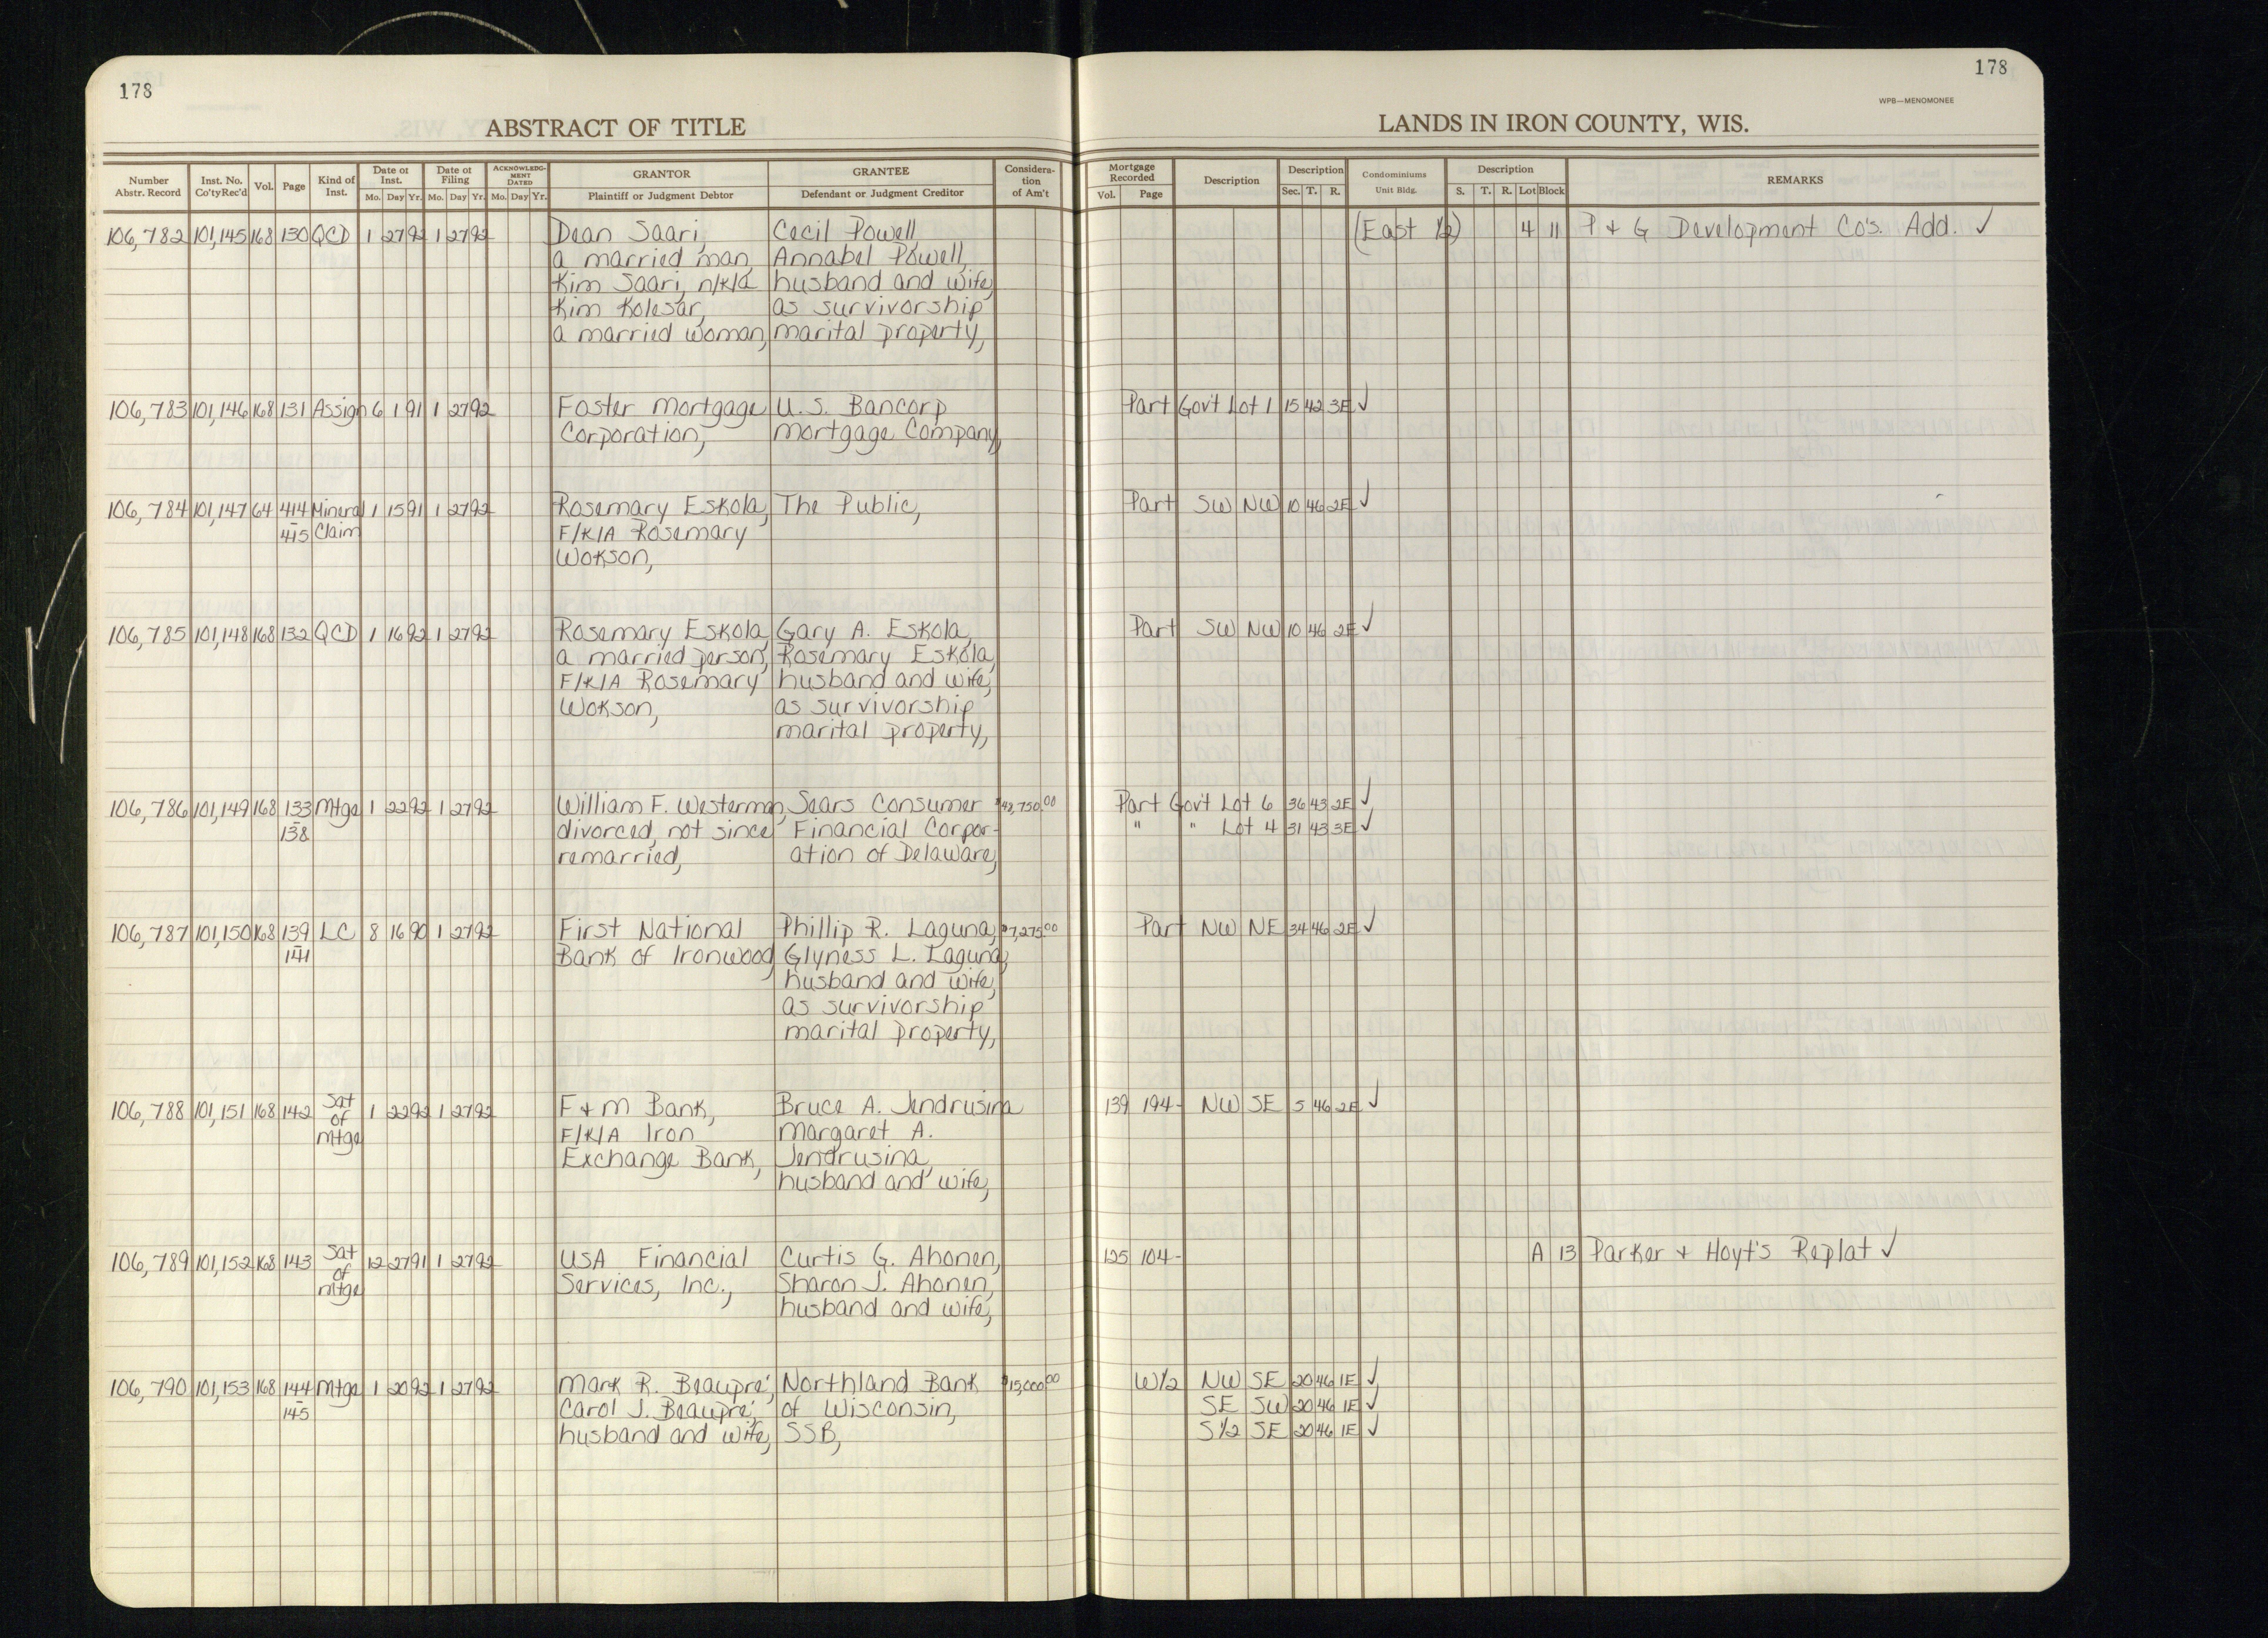 178
178
WPB—MENOMONEE
ABSTRACT OF TITLE
LANDS IN IRON COUNTY, WIS.
Number Abstr. Record | Inst. No. Co'ty Rec'd | Vol. | Page | Kind of Inst. | Date of Inst. Mo. Day Yr. | Date of Filing Mo. Day Yr. | ACKNOWLEDGMENT DATED Mo. Day Yr. | GRANTOR Plaintiff or Judgment Debtor | GRANTEE Defendant or Judgment Creditor | Consideration of Am't | Mortgage Recorded Vol. Page | Description | Description Sec. T. R. | Condominiums Unit Bldg. | Description S. T. R. Lot Block | REMARKS
106,782 101,145 168 130 QCD 1 27 92 1 27 92 Dean Saari, Cecil Powell (East ½) 4 11 P & G Development Co's. Add. ✓
a married man, Annabel Powell,
Kim Saari, n/k/a husband and wife,
Kim Kolesar, as survivorship
a married woman, marital property,
106,783 101,146 168 131 Assign 6 1 91 1 27 92 Foster Mortgage U.S. Bancorp Part Gov't Lot 1 15 42 3E ✓
Corporation, Mortgage Company,
106,784 101,147 64 414 Mineral 1 15 91 1 27 92 Rosemary Eskola, The Public, Part SW NW 10 46 2E ✓
– 415 Claim F/K/A Rosemary
Wokson,
106,785 101,148 168 132 QCD 1 16 92 1 27 92 Rosemary Eskola, Gary A. Eskola, Part SW NW 10 46 2E ✓
a married person, Rosemary Eskola,
F/K/A Rosemary husband and wife,
Wokson, as survivorship
marital property,
106,786 101,149 168 133 Mtge 1 22 92 1 27 92 William F. Westerman, Sears Consumer $42,750.00 Part Gov't Lot 6 36 43 2E ✓
– 138 divorced, not since Financial Corpor- " " Lot 4 31 43 3E ✓
remarried, ation of Delaware,
106,787 101,150 168 139 LC 8 16 90 1 27 92 First National Phillip R. Laguna, $7,275.00 Part NW NE 34 46 2E ✓
– 141 Bank of Ironwood Glyness L. Laguna,
husband and wife,
as survivorship
marital property,
106,788 101,151 168 142 Sat 1 22 92 1 27 92 F & M Bank, Bruce A. Jendrusina 139 194- NW SE 5 46 2E ✓
of F/K/A Iron Margaret A.
Mtge Exchange Bank, Jendrusina,
husband and wife,
106,789 101,152 168 143 Sat 12 27 91 1 27 92 USA Financial Curtis G. Ahonen, 125 104- A 13 Parker & Hoyt's Replat ✓
of Services, Inc., Sharon J. Ahonen,
Mtge husband and wife,
106,790 101,153 168 144 Mtge 1 20 92 1 27 92 Mark R. Beaupre', Northland Bank $15,000.00 W½ NW SE 20 46 1E ✓
– 145 Carol J. Beaupre', of Wisconsin, SE SW 20 46 1E ✓
husband and wife, SSB, S½ SE 20 46 1E ✓